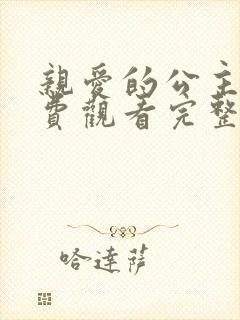 親愛的公主
費觀看完整
哈達薩